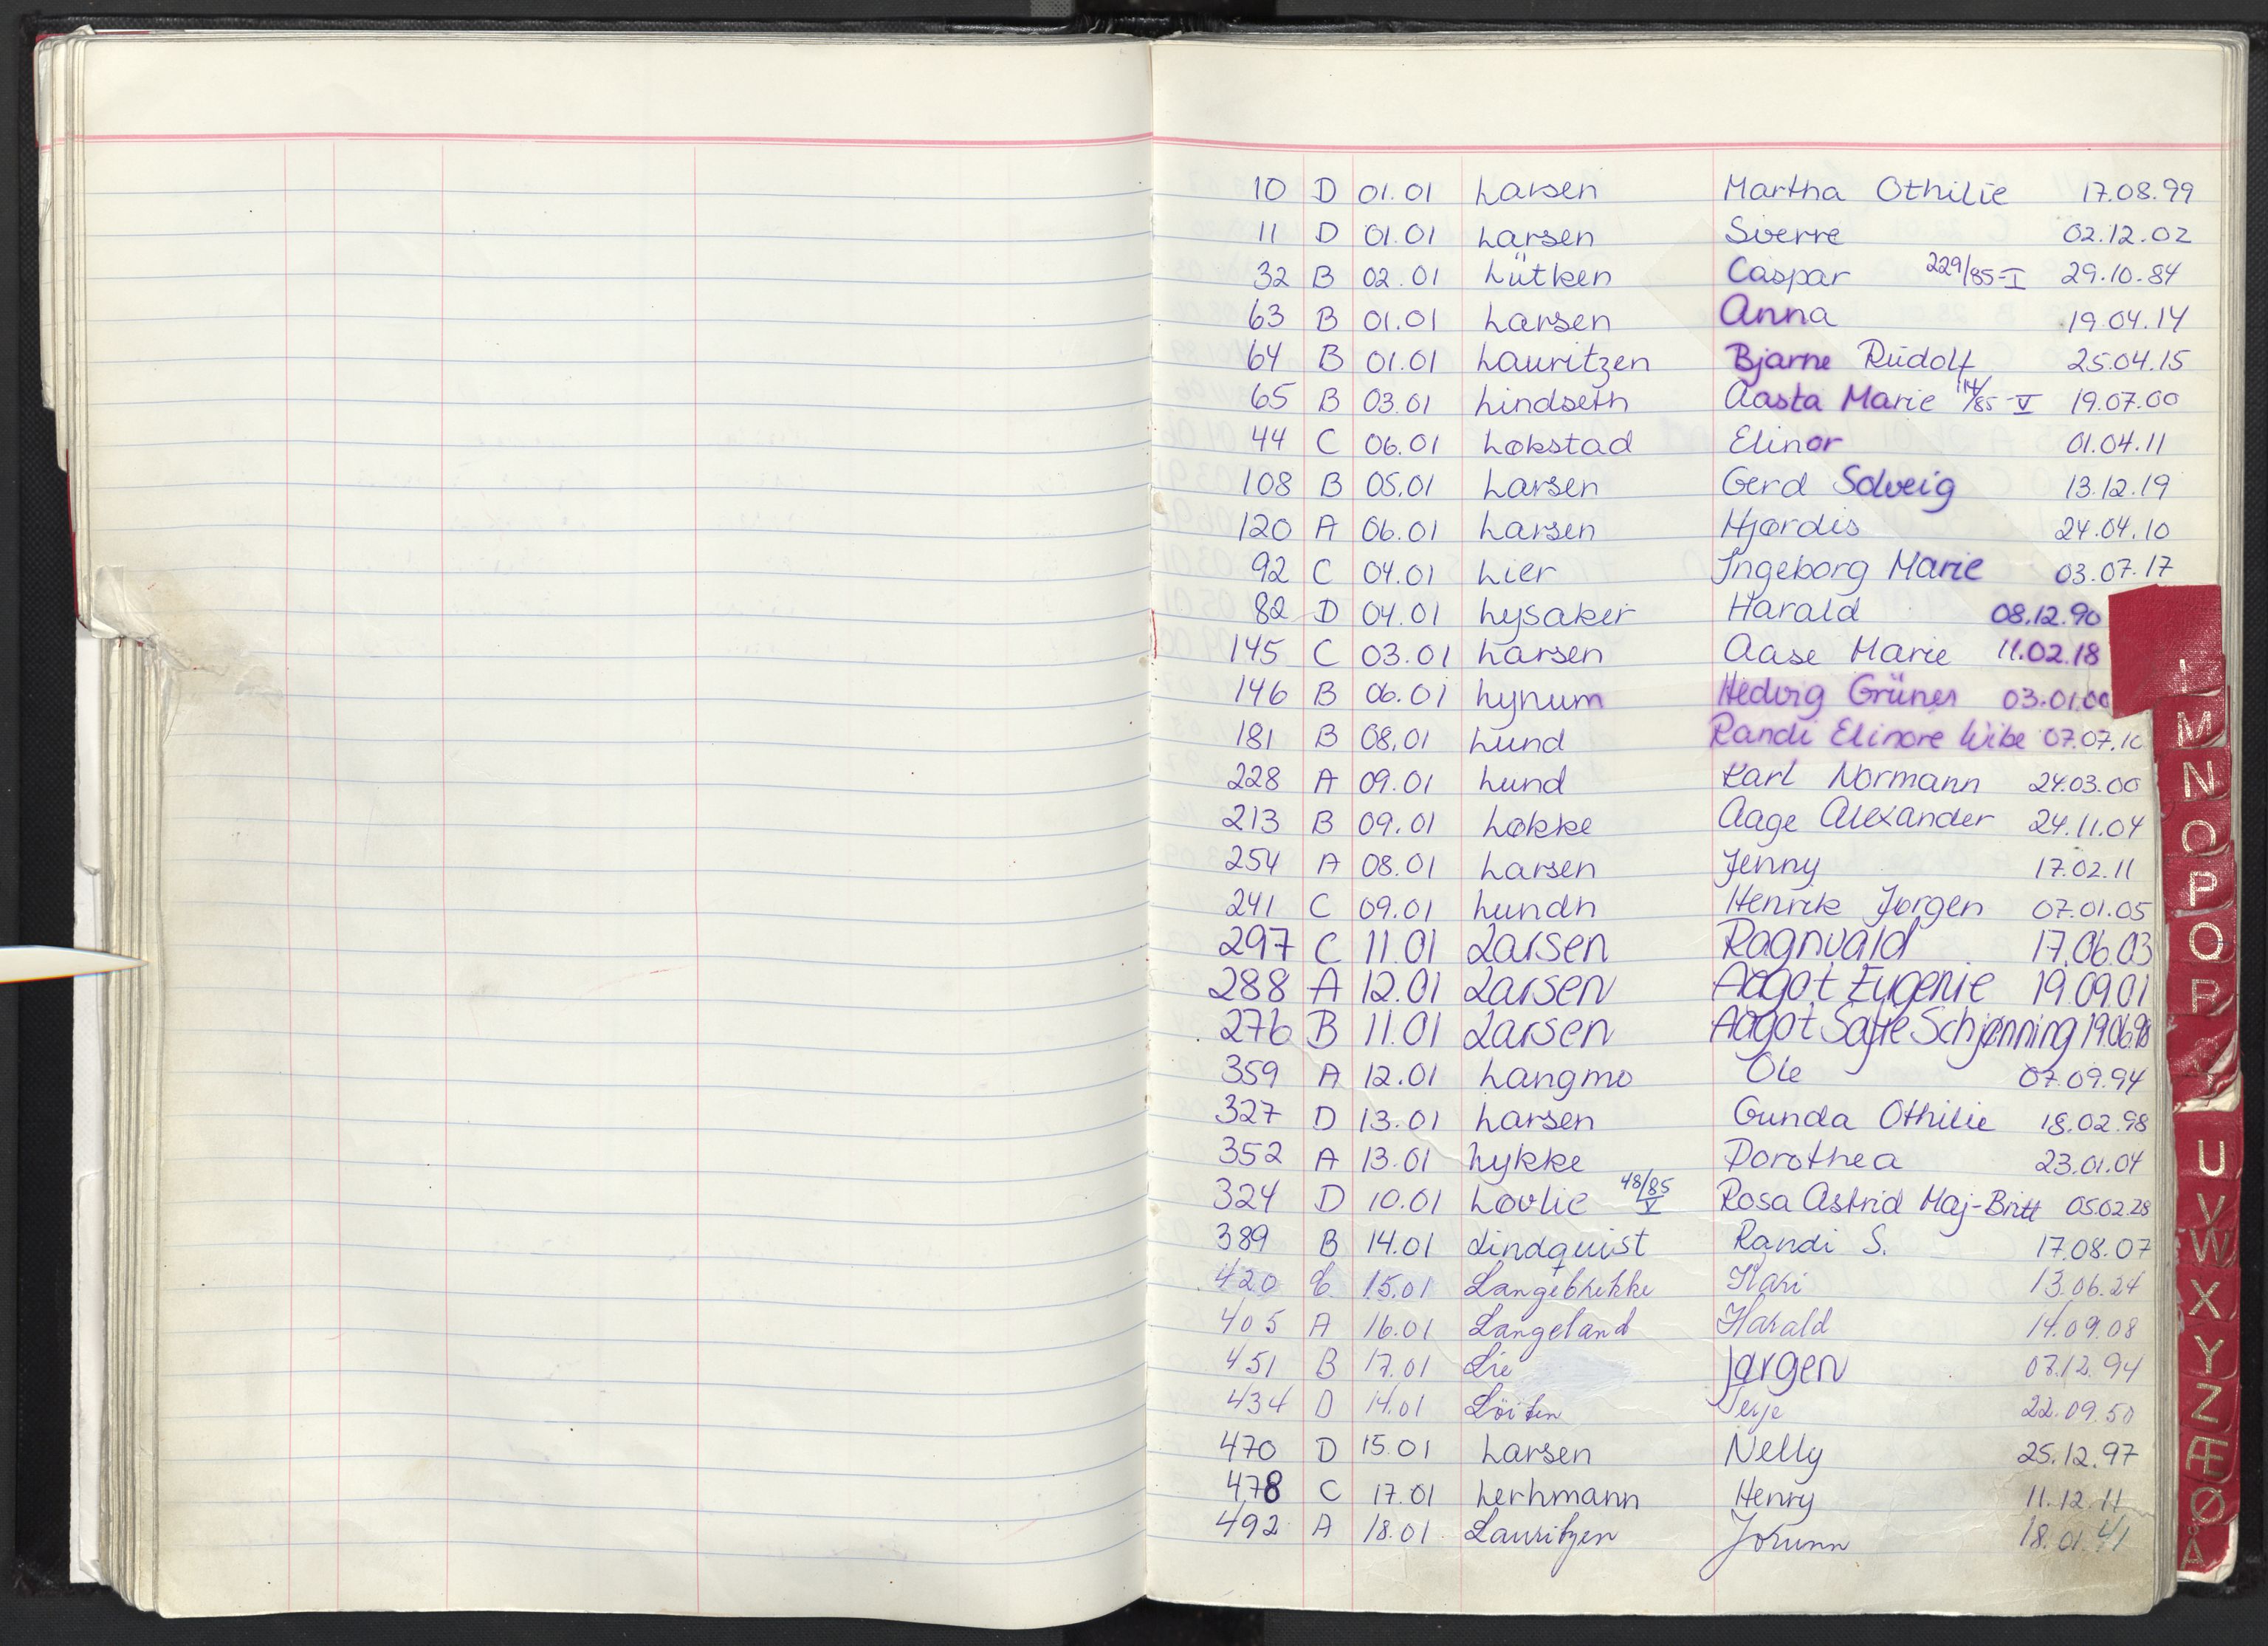 10 D 01.01 Larsen Martha Othilie 17.08.99
11 D 01.01 Larsen Sverre 02.12.02
32 B 02.01 Lütken Caspar 229/85-I 29.10.84
63 B 01.01 Larsen Anna 19.04.14
64 B 01.01 Lauritzen Bjarne Rudolf 25.04.15
65 B 03.01 Lindseth Aasta Marie 114/85-V 19.07.00
44 C 06.01 Løkstad Elinor 01.04.11
108 B 05.01 Larsen Gerd Solveig 13.12.19
120 A 06.01 Larsen Hjørdis 24.04.10
92 C 04.01 Lier Ingeborg Marie 03.07.17
82 D 04.01 Lysaker Harald 08.12.90
145 C 03.01 Larsen Aase Marie 11.02.18
146 B 06.01 Lynum Hedvig Grüner 03.01.00
181 B 08.01 Lund Randi Elinore Wibe 07.07.10
228 A 09.01 Lund Karl Normann 24.03.00
213 B 09.01 Løkke Aage Alexander 24.11.04
254 A 08.01 Larsen Jenny 17.02.11
241 C 09.01 Lundh Henrik Jørgen 07.01.05
297 C 11.01 Larsen Ragnvald 17.06.03
288 A 12.01 Larsen Aagot Eugenie 19.09.01
276 B 11.01 Larsen Aagot Sofie Schjønning 19.06.98
359 A 12.01 Langmo Ole 07.09.94
327 D 13.01 Larsen Gunda Othilie 18.02.98
352 A 13.01 Lykke Dorothea 23.01.04
324 D 10.01 Løvlie 48/85 V Rosa Astrid Maj-Britt 05.02.28
389 B 14.01 Lindquist Randi S. 17.08.07
420 C 15.01 Langebrekke Kari 13.06.24
405 A 16.01 Langeland Harald 14.09.08
451 B 17.01 Lie Jørgen 07.12.94
434 D 14.01 Löiten Terje 22.09.50
470 D 15.01 Larsen Nelly 25.12.97
478 C 17.01 Lerhmann Henry 11.12.11
492 A 18.01 Lauritzen Jorunn 18.01.41
L
M
N
O
P
Q
R
U
V
W
X
Y
Z
Æ
Ø
Å